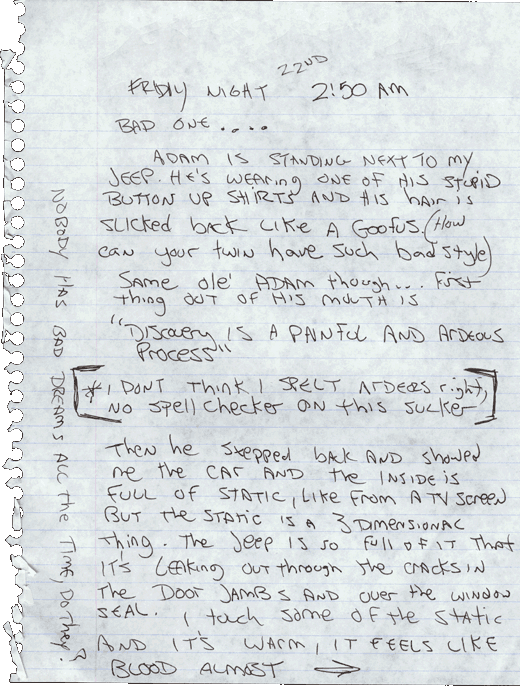 FRIDAY NIGHT 22ND 2:50 AM
BAD ONE....
ADAM IS STANDING NEXT TO my
JEEP. HE'S WEARING ONE OF HIS STUPID
BUTTON UP SHIRTS AND HIS HAIR IS
SLICKED BACK LIKE A GOOFUS. (How
can your twin have such bad style)
Same ole' ADAM though... First
thing OUT OF HIS MOUTH IS
"DISCOVERY IS A PAINFUL AND ARDEOUS
PROCESS"
[* I DON'T THINK I SPELT ARDEOUS right,
NO SPELL CHECKER ON this SUCKER]
Then he stepped back AND showed
me the CAR AND the INSIDE IS
FULL OF STATIC, LIKE FROM A TV SCREEN
BUT the STATIC IS A 3 DIMENSIONAL
thing. The Jeep IS so full of IT THAT
IT'S LEAKING OUT through the CRACKS IN
The DOOR JAMBS AND over the WINDOW
SEAL. I touch some of the STATIC
AND IT'S WARM, IT FEELS LIKE
BLOOD ALMOST →
NOBODY HAS BAD DREAMS ALL the TIME, DO they?